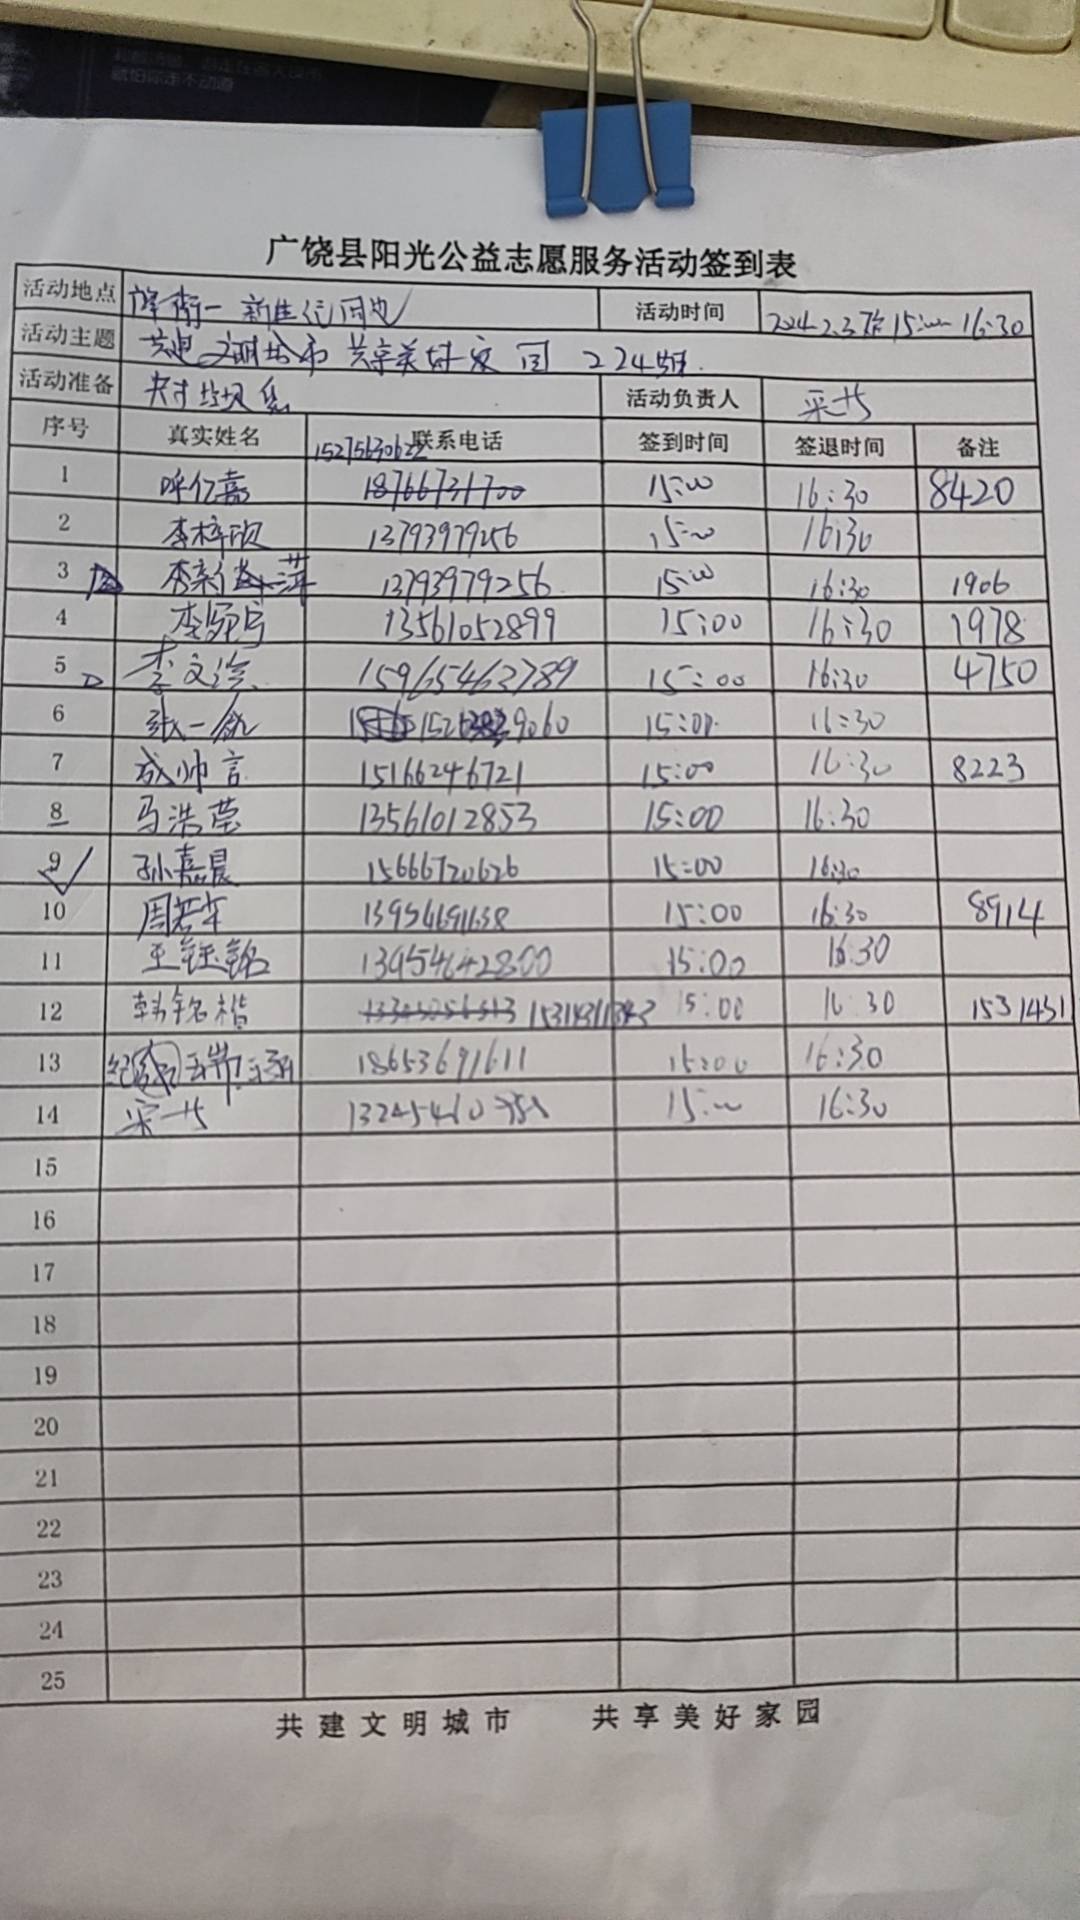 广饶县阳光公益志愿服务活动签到表
活动地点 活动时间 2024.2.3 15:00 16:30
活动主题 共建文明城市 共享美好家园 224期
活动准备 夹子垃圾袋 活动负责人
序号 真实姓名 联系电话 签到时间 签退时间 备注
1 呼亿嘉 18766731700 15:00 16:30 8420
2 李梓欣 13793979256 15:00 16:30
3 李新萍 13793979256 15:00 16:30 1906
4 13561052899 15:00 16:30 1978
5 李文 15965463789 15:00 16:30 4750
6 张一 15:00 16:30
7 成帅言 15166246721 15:00 16:30 8223
8 马浩莹 13561012853 15:00 16:30
9 孙嘉晨 15666720626 15:00 16:30
10 周若车 13954691638 15:00 16:30 8914
11 王钰铭 13954642800 15:00 16:30
12 韩铭楷 15:00 16:30 1531431
13 18653691611 15:00 16:30
14 15:00 16:30
15
16
17
18
19
20
21
22
23
24
25
共建文明城市 共享美好家园